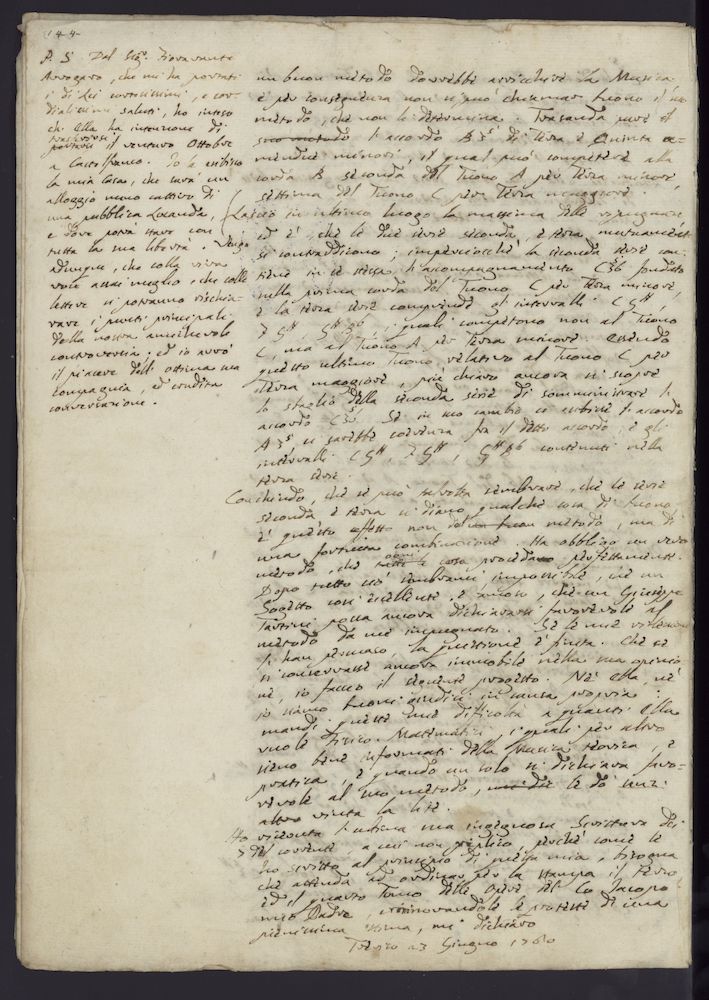 144
P. S. Dal Sigr. Fioravante
Avogaro, che mi ha portati
i di Lei cortesissimi, e cor-
dialissimi saluti, ho inteso
che Ella ha intenzione di
trasferirsi il venturo Ottobre
a Castelfranco. Io le esibisco
la mia Casa, che sarà un
alloggio meno cattivo di
una pubblica Locanda,
e dove potrà stare con
tutta la sua libertà. Venga
adunque, che colla viva
voce assai meglio, che colle
lettere si potranno rischia-
rare i punti principali
della nostra amichevole
controversia; ed io avrò
il piacere dell' ottima sua
compagnia, ed erudita
conversazione.
un buon metodo dovrebbe arricchire la Musica
e per conseguenza non si può chiamar buono il suo
metodo, che non lo determina. Trascuda pure al
suo metodo l'accordo B 5 di terza e Quinta a-
mendue minori, il qual può competere alla
corda B seconda del Tuono A per terza minore,
settima del Tuono C per terza maggiore.
Lascio in ultimo luogo la massima delle ripugnanze
ed è, che le due serie seconda, e terza mutuamente
si contraddicono; imperciocchè la seconda serie con-
tiene in se stessa l'accompagnamento C 3 6 fondato
nella prima corda del Tuono C per terza minore,
e la terza serie comprende gl' intervalli C G#,
i quali competono non al Tuono
C, ma al Tuono A per terza minore. Essendo
questo ultimo Tuono relativo al Tuono C per
terza maggiore, più chiaro ancora si scopre
lo sbaglio della seconda serie di somministrare l'
accordo C 3 6. Se in suo cambio si esibisce l'accordo
A 3 5 ci sarebbe coerenza fra il detto accordo, e gli
intervalli C G#, contenuti nella
terza serie.
Conchiudo, che se può talvolta sembrare, che le serie
seconda e terza ci diano qualche cosa di buono
è questo effetto non del suo buon metodo, ma di
una fortuita combinazione. Ha obbligo un vero
metodo, che tutte le cose procedano perfettamente.
Dopo tutto ciò sembrami impossibile, che un
Soggetto così eccellente, e ancora, che un Giuseppe
Tartini possa ancora dichiararsi favorevole al
metodo da me impugnato. Se le mie riflessioni
l' han persuaso, la questione è finita. Che se
si conservasse ancora immobile nella sua opinio-
ne, io faccio il seguente progetto. Nè Ella, nè
io siamo buoni giudici in causa propria.
mandi queste mie difficoltà a quanti Ella
vuole Fisico-Mattematici, i quali per altro
sieno bene informati della Musica teorica, e
pratica, e quando un solo si dichiara favo-
revole al suo metodo, le do senz'
altro vinta la lite.
Ho ricevuta l'ultima sua ingegnosa Scrittura dei
7 del corrente, a cui non replico, perchè come le
ho scritto al principio di questa mia, bisogna
che attenda ad ordinar per la stampa il terzo
ed il quarto Tomo delle Opere del Co: Jacopo
mio Padre, e rinnovandole le proteste di una
pienissima stima, mi dichiaro
Treviso 23 Giugno 1760